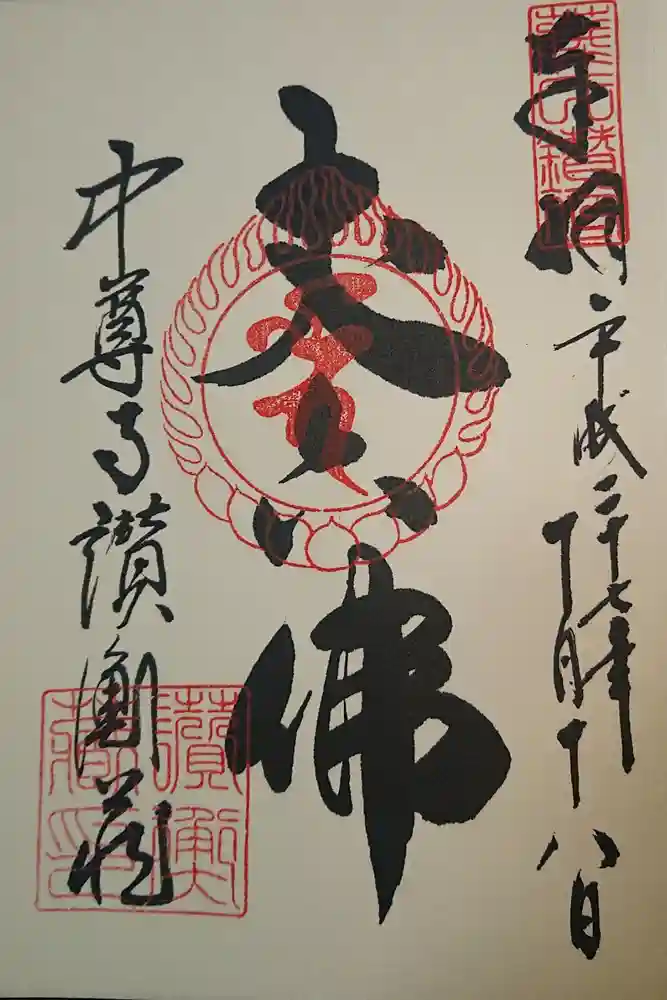 奉拝
平成二十七年
十月十八日
大佛
中尊寺讃衡蔵
讚衡
藏印